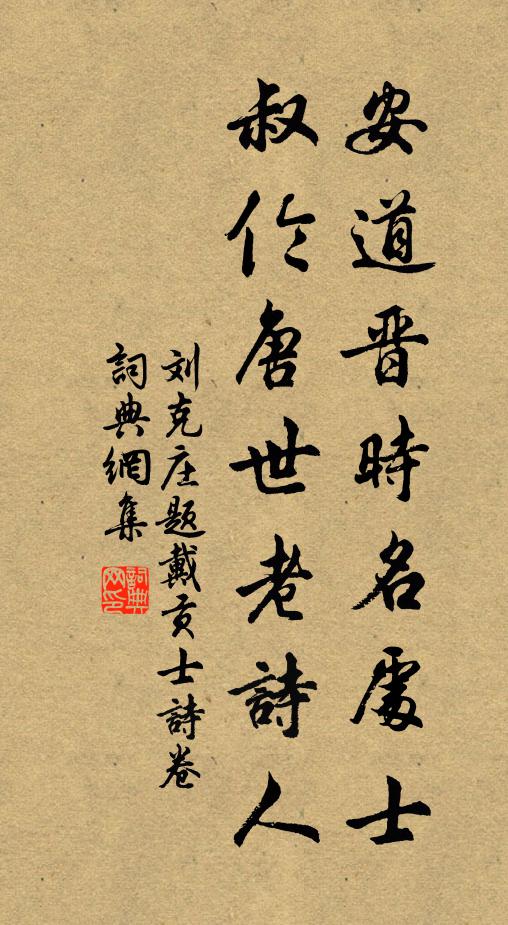 安道晋時名處士
叔伦唐世老詩人
刘克庄題戴贡士詩卷
詞典網集
詞典網印